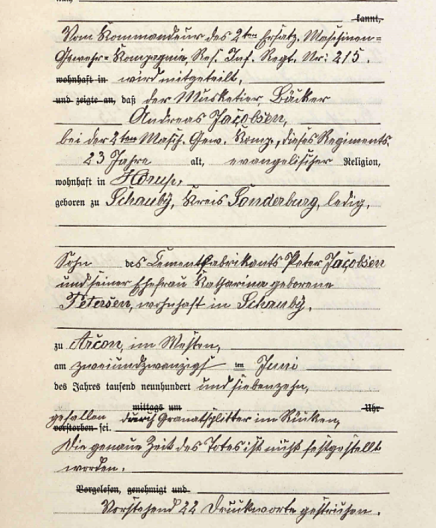 kannt,
Vom Kommandeur des 2ten Ersatz-Maschinen-
Gewehr-Kompagnie, Res. Inf. Regt. Nr: 215.
wohnhaft in wird mitgeteilt,
und zeigte an, daß der Musketier, Bäcker
Andreas Jacobsen,
bei der 2ten Masch. Gew. Komp. dieses Regiments
23 Jahre alt, evangelischer Religion,
wohnhaft in Hörup,
geboren zu Schauby, Kreis Sonderburg, ledig,
Sohn des Cementfabrikants Peter Jacobsen
und seiner Ehefrau Katharina geborene
Petersen, wohnhaft in Schauby.
zu Arçon, im Westen,
am zweiundzwanzigst en Juni
des Jahres tausend neunhundert und siebenzehn,
mittags um Uhr
gefallen durch Granatsplitter im Rücken,
verstorben sei.
Die genaue Zeit des Todes ist nicht festgestellt
worden.
Vorgelesen, genehmigt und
Vorstehend 22 Druckworte gestrichen.